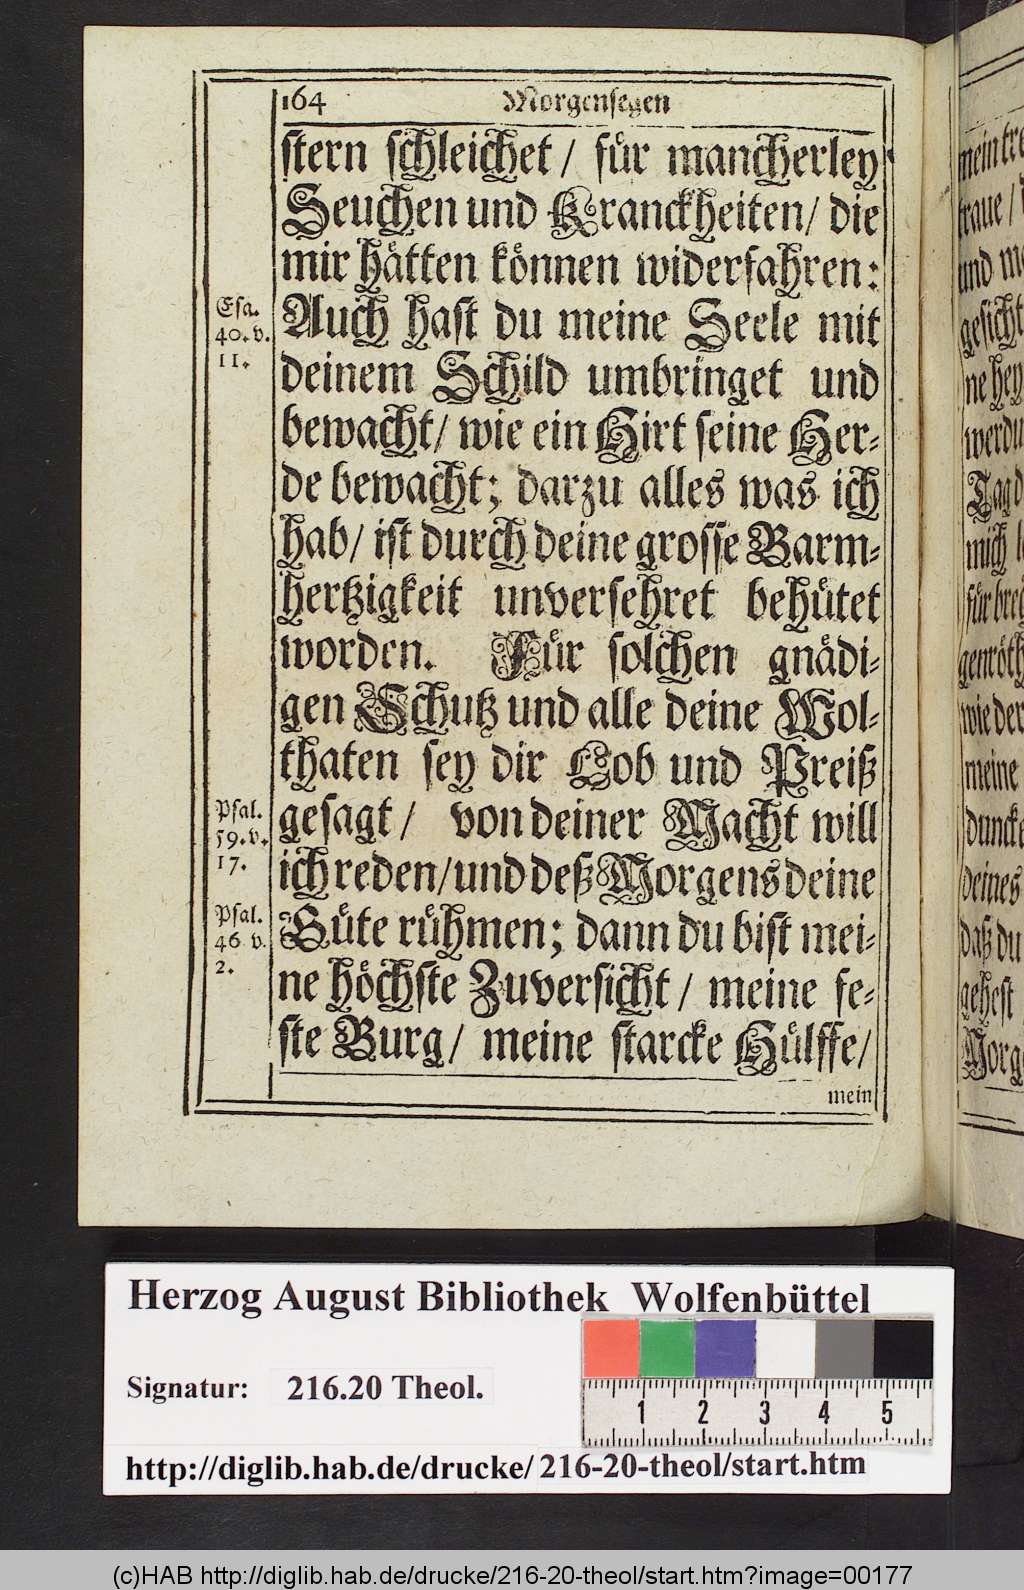 164 Morgensegen
stern schleichet / für mancherley
Seuchen und Kranckheiten / die
mir hätten können widerfahren:
Auch hast du meine Seele mit
deinem Schild umbringet und
bewacht / wie ein Hirt seine Her-
de bewacht; darzu alles was ich
hab / ist durch deine grosse Barm-
hertzigkeit unversehret behütet
worden. Für solchen gnädi-
gen Schutz und alle deine Wol-
thaten sey dir Lob und Preiß
gesagt / von deiner Macht will
ich reden / und deß Morgens deine
Güte rühmen; dann du bist mei-
ne höchste Zuversicht / meine fe-
ste Burg / meine starcke Hülffe /
mein
Esa.
40. v.
11.
Psal.
59. v.
17.
Psal.
46 v.
2.
traue /
und
gesicht
ne hey
Tag d
mich
für
wie der
meine
deines
daß du
gehest
Herzog August Bibliothek Wolfenbüttel
Signatur: 216.20 Theol.
1 2 3 4 5
http://diglib.hab.de/drucke/216-20-theol/start.htm
(c)HAB http://diglib.hab.de/drucke/216-20-theol/start.htm?image=00177